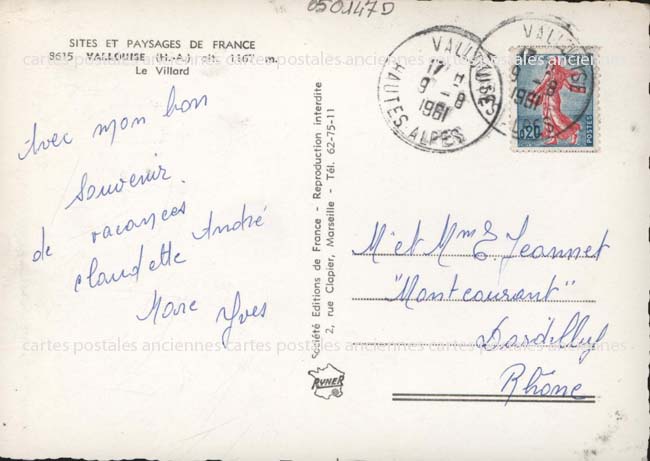 050147D
SITES ET PAYSAGES DE FRANCE
8615 VALLOUISE (H.-A.) alt. 1167 m.
Le Villard
Avec mon bon
souvenir
de vacances
claudette André
Marc Yves
Société Editions de France - Reproduction interdite
2, rue Clapier, Marseille - Tél. 62-75-11
RYNER
VALLOUISE
17 H
9 - 8
1961
HAUTES-ALPES
VALLOUISE
9 - 8
1961
0,20
POSTES
M et Mme E. Jeannet
"Montcourant"
Dardilly
Rhône
cartes postales anciennes cartes postales anciennes cartes postales anciennes
cartes postales anciennes cartes postales anciennes cartes postales anciennes
cartes postales anciennes cartes postales anciennes cartes postales anciennes